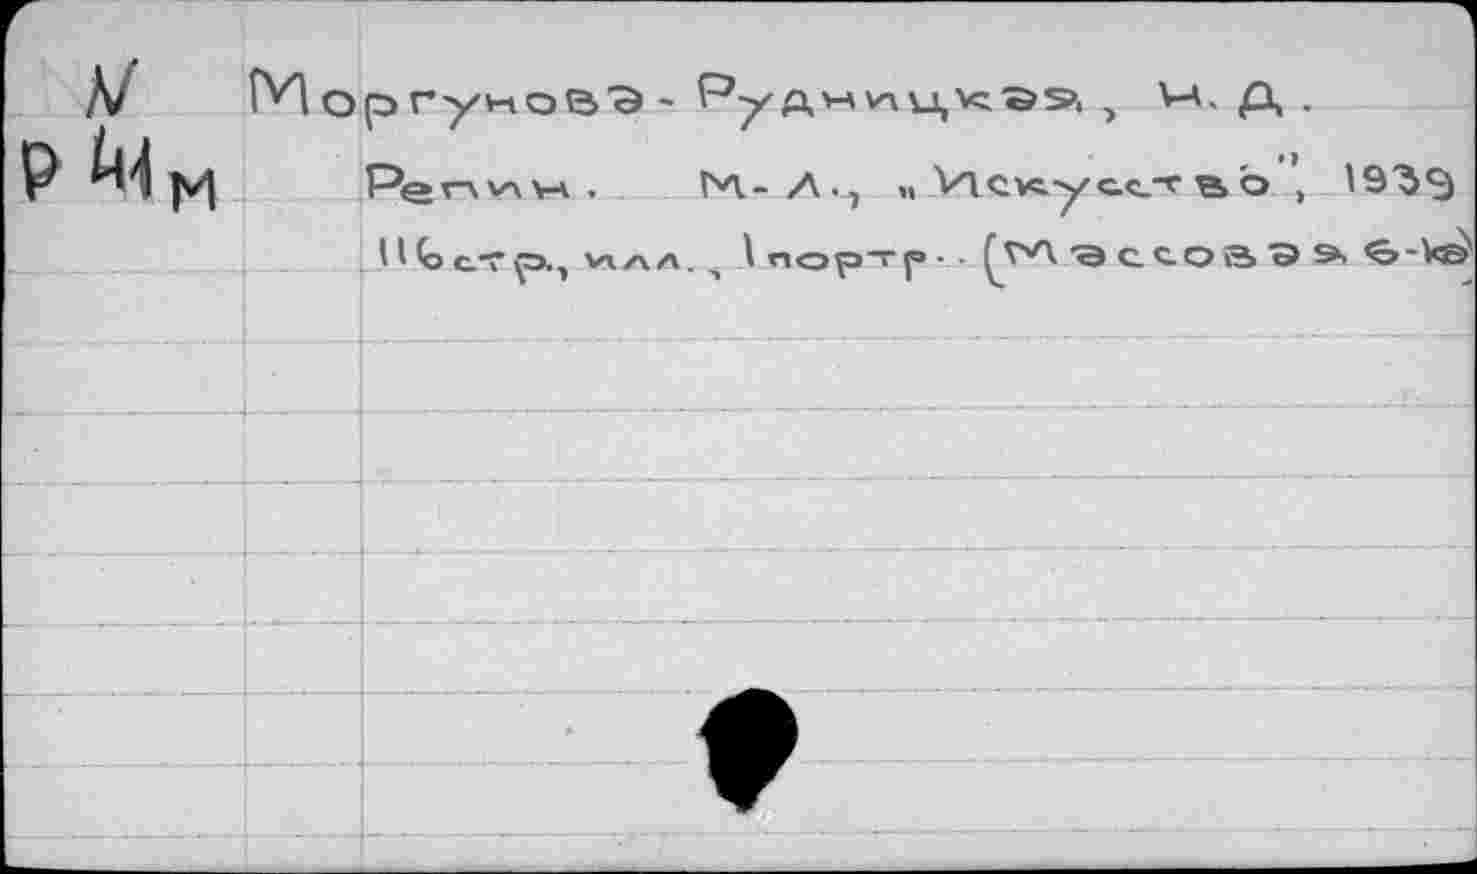 N Моргунова-Рудницкая, Н. Д.
Р М Репин. М.-Л., „Искусство", 1939
116 стр., илл., 1 портр. (Массовая б-ка)